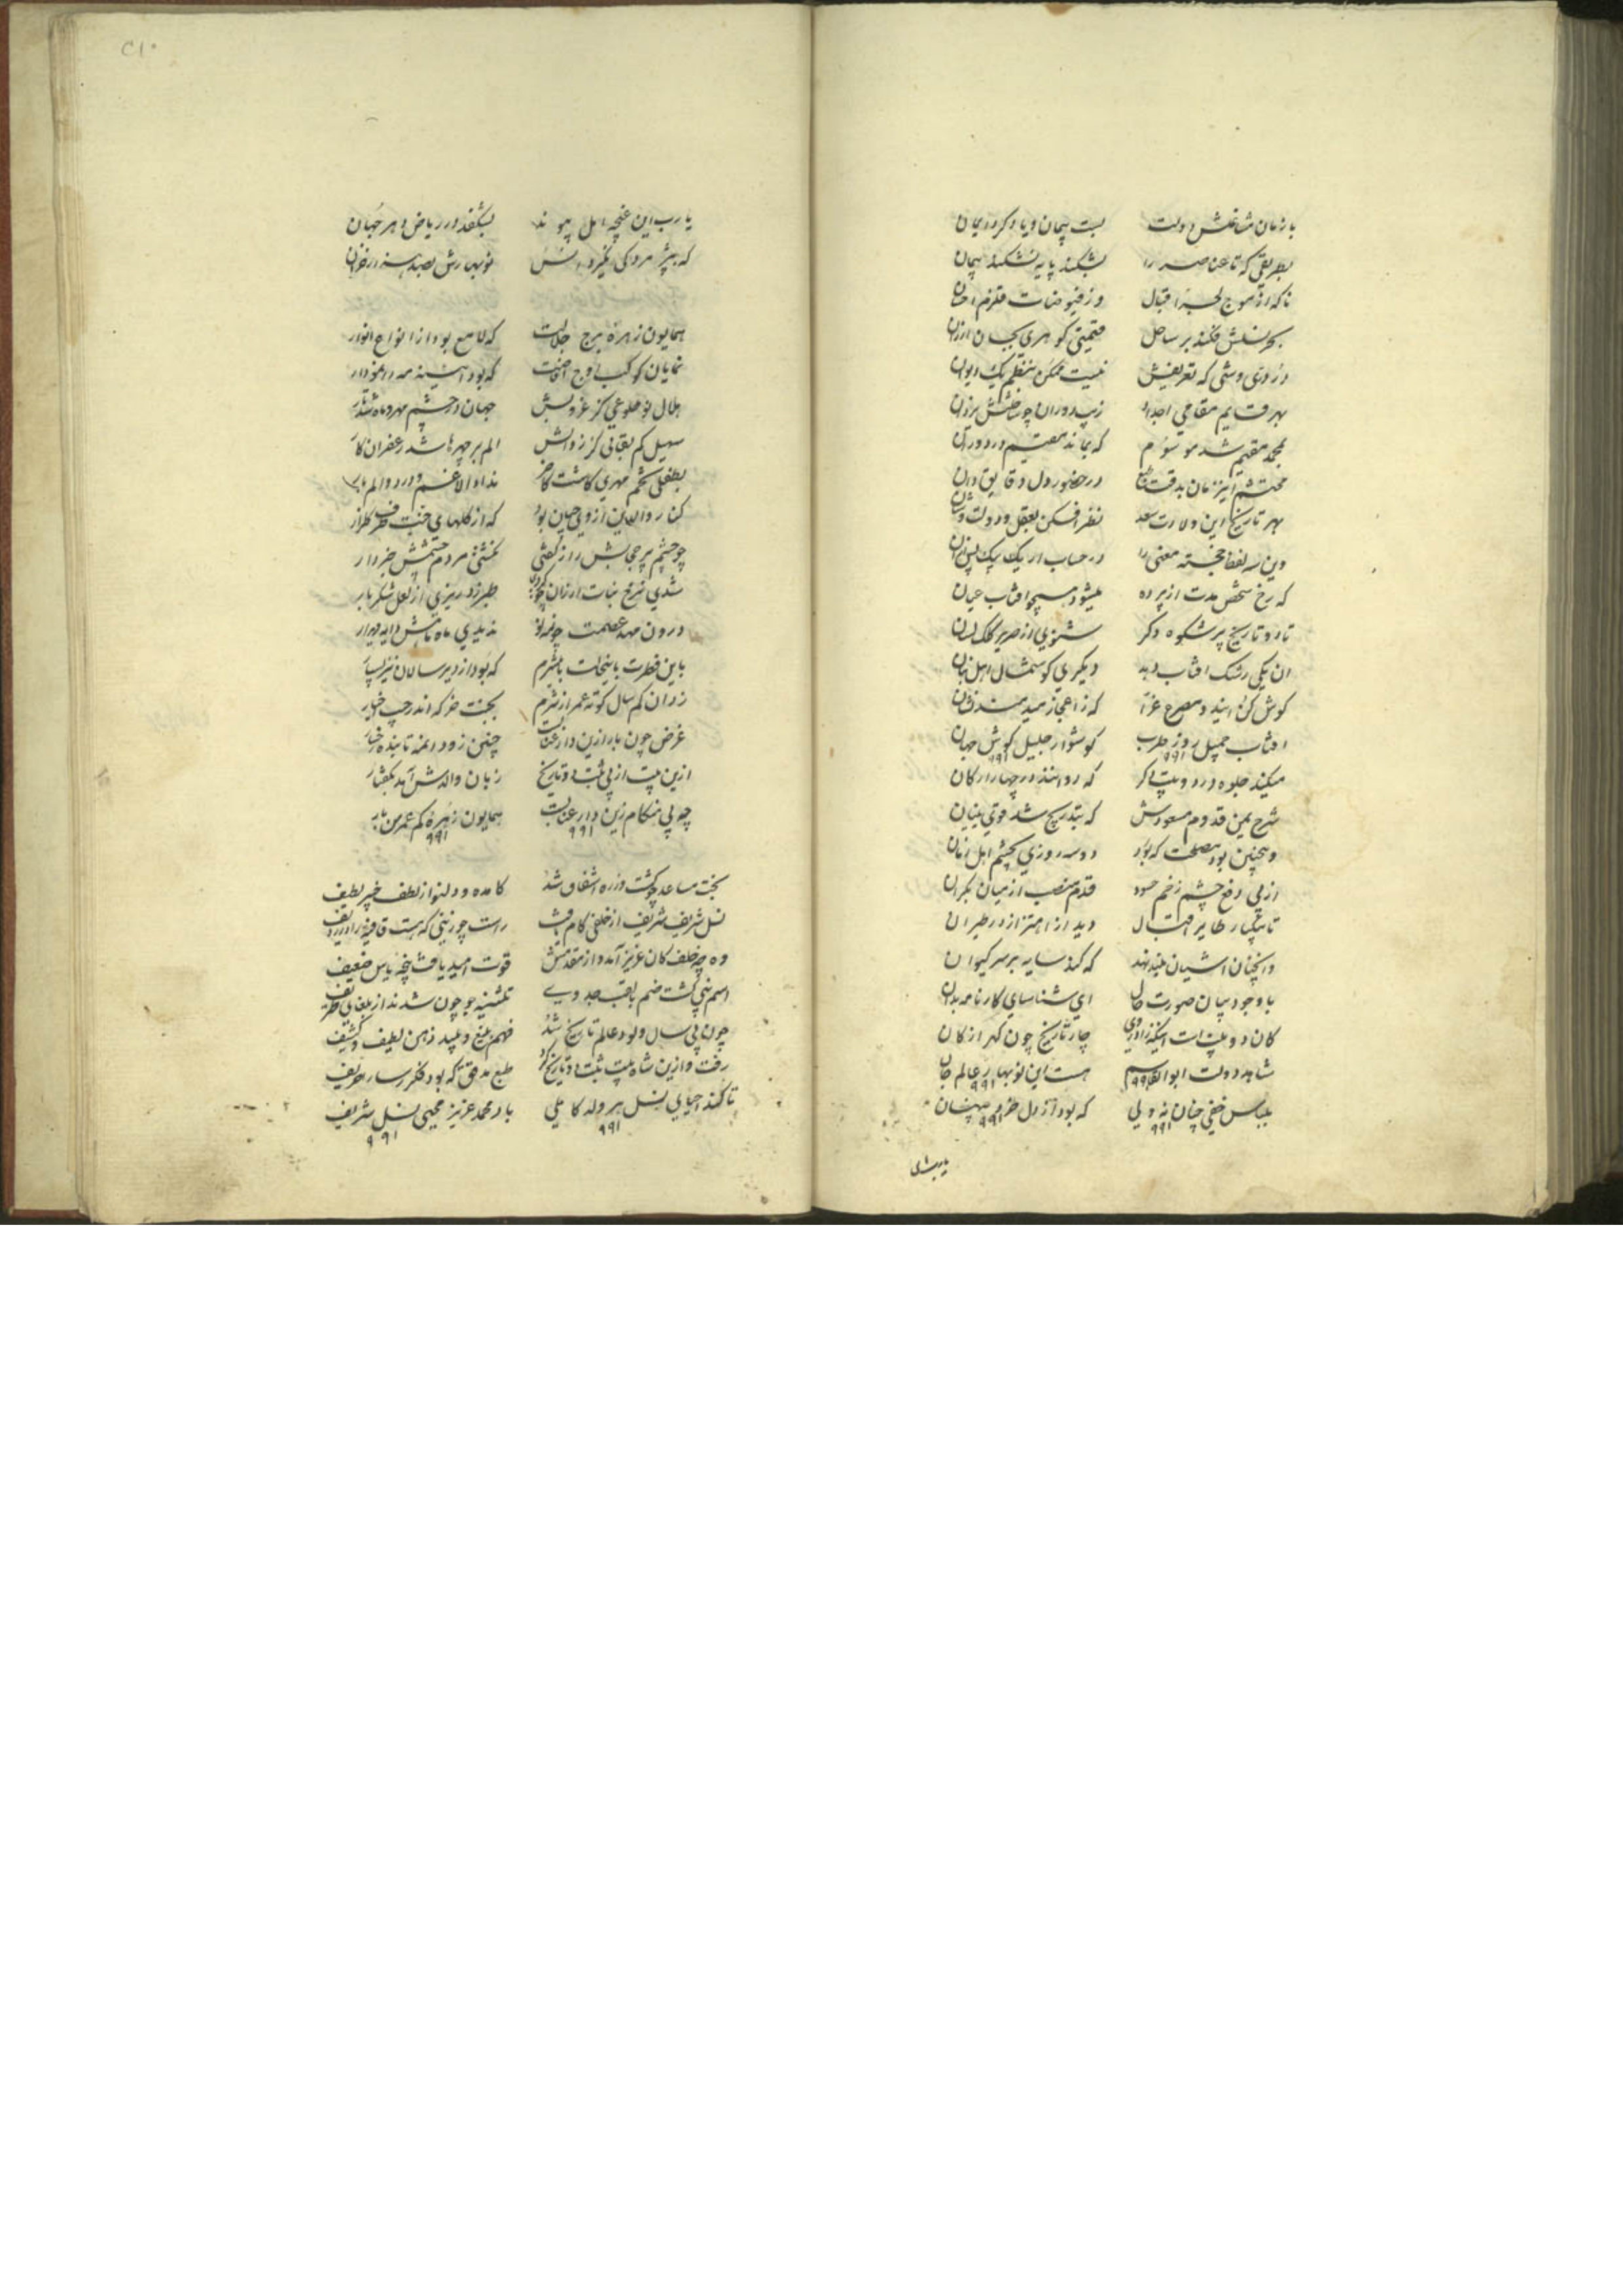 با زمان مشاغلش دولت بست پیمان و یاد کرد ایمان
بطریقی که تا عناصر را بشکند پایه نشکند پیمان
تا که از موج لجهٔ اقبال وز فیوضات قلزم احسان
بحر نسلش فکند بر ساحل قیمتی گوهری بجان ارزان
دُر دری وشی که تعریفش نیست ممکن بنظم یک دیوان
بهر قایم مقامی اجداد زیب دوران چو ساختش یزدان
بمحمد مقیم شد موسوم که بماند مقیم در دوران
محتشم این زمان بدقت طبع در حضور دل دقایق دان
بهر تاریخ این ولادت سعد نظر افکن بعقل و دولت و شان
وین سه لفظ خجسته معنی را در حساب ار یک یک پس ازان
که رخ شخص مدت از پرده میشود همچو آفتاب عیان
تا دو تاریخ پر شکوه دگر شنوی از صریر کلک لسان
آن یکی رشک آفتاب دهد دیگری گوشمال اهل زبان
گوش کن اینک دو مصرع غرا که ز اعجاز میدهند نشان
آفتاب جمیل روز طرب گوشوار جلیل گوش جهان
۹۹۱ ۹۹۱
میکند جلوه در دو بیت دگر که روانند در چهار ارکان
شرح یمن قدوم مسعودش که بتدریج شد قوی بنیان
وین چنین بود مصلحت که بود دو سه روزی بچشم اهل زمان
از پی دفع چشم زخم حسود قدم منصب از میان بکران
تا بیکبار طایر اقبال دید از اهتزاز در طیران
وانچنان آشیان بلند نهد که کند سایه بر سر کیوان
با وجود بیان صورت حال ای شناسای کارنامه بدان
کان دو بیت است اینکه زاد در وی چار تاریخ چون گهر از کان
شاهد دولت ابوالقاسم هست این نوبهار عالم جان
۹۹۱ ۹۹۱
بلباس خفی چنان نه ولی که بود از دل خرد پنهان
۹۹۱ ۹۹۱
یارب این
۲۱۰
یارب این غنچهٔ امل پیوند بشکفد در ریاض دهر چنان
که بپژمردگی نگیرد انس نوبهارش بصد هزار خزان
همایون زهرهٔ برج جلالت که لامع بود ازو انواع انوار
نمایان کوکب اوج اصالت که بود آیینهٔ مه را نمودار
هلال نو طلوعی کز غروبش جهان در چشم مهر و ماه شد تار
سهیل کم بقائی کز زوالش الم بر چهرها شد زعفران کار
بطفلی تخم مهری کاشت کاخر نداد الا غم و درد و الم بار
کنار والدین از وی چمن بود که از گلهای جنت طرف گلزار
چو چشم پر حجابش راز گفتی نگشتی مردم چشمش خبردار
شدی نرخ نبات ارزان چو کردی طبرزد ریزی از لعل شکربار
درون مهد عصمت چون غنودی ندیدی ماه تابش دایه دیدار
باین فطرت باین حالت باین شرم که بود از دیر سالان نیز بسیار
زد آن کم سال کوته عمر از شرم بجنت خرگه اندر جیب خار
غرض چون بار ازین دار عنا بست چنین زود آن مه تابنده رخسار
ازین بیت از پی ثبت دو تاریخ زبان والدش آمد بگفتار
چه بی هنگام زین دار عنا بست همایون زهرهٔ کم عمر من بار
۹۹۱ ۹۹۱
بخت مساعد چو گشت وز ره اشفاق شد کامده و دلنواز لطف خبیر لطیف
نسل شریف شریف از خلفی کام یافت راست چو زینی که هست قافیه را در ردیف
وه چه خلف کان عزیز آمد و از مقدمش قوت امید یافت پنجهٔ یاس ضعیف
اسم نبی گشت ضم بلقب جد وی تثنیه جو چون شدند از بلغای ظریف
چون پی سال ولود عالم تاریخ شد فهم بلیغ و بلید ذهن لطیف و کثیف
رفت و ازین شاه بیت ثبت دو تاریخ کرد طبع مدقق که بود فکر رسا را حریف
تا کند احیای نسل بهر ولد کاملی باد محمد عزیز محیی نسل شریف
۹۹۱ ۹۹۱